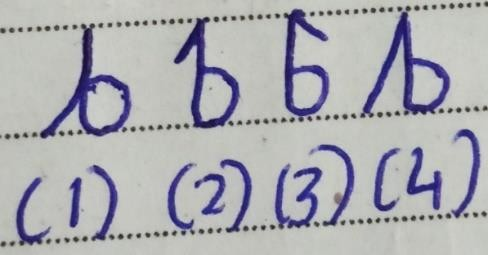 b b b b
(1) (2) (3) (4)